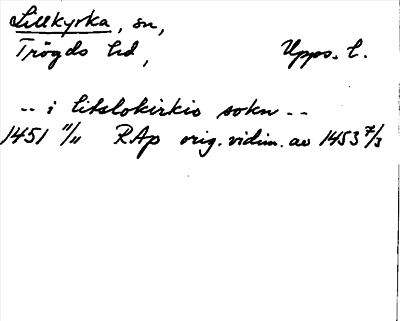 Lillkyrka, sn,
Trögds hd, Upps. l.
-- i litslokirkio sokn --
1451 11/11 RAp orig. vidim. av 1453 7/3